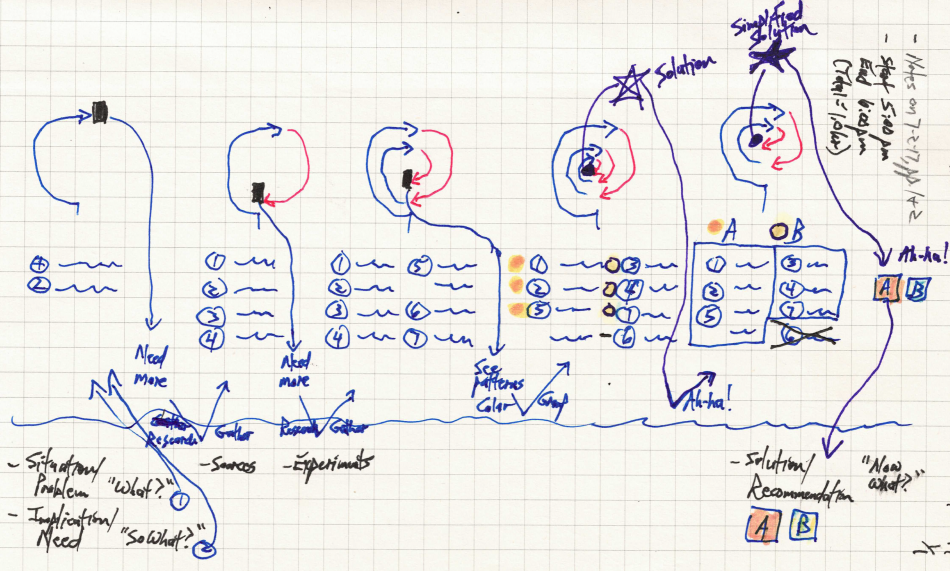 Simplified
Solution
Solution
- Notes on 7-2-17,
- Start 5:00 pm
End 6:00 pm
(Total = 1.0 hr)
A
B
Ah-ha!
A B
4
2
1
2
3
4
1 5
2
3 6
4 7
1 3
2 4
5 7
- 6
1 3
2 4
5 7
6
Need
more
Need
more
See
patterns
Color
Group
Ah-ha!
Research
Gather
Research
Gather
- Sources
- Experiments
- Situation/
Problem "What?"
1
- Implication/
Need "So What?"
2
- Solution/
Recommendation
"Now
What?"
A B